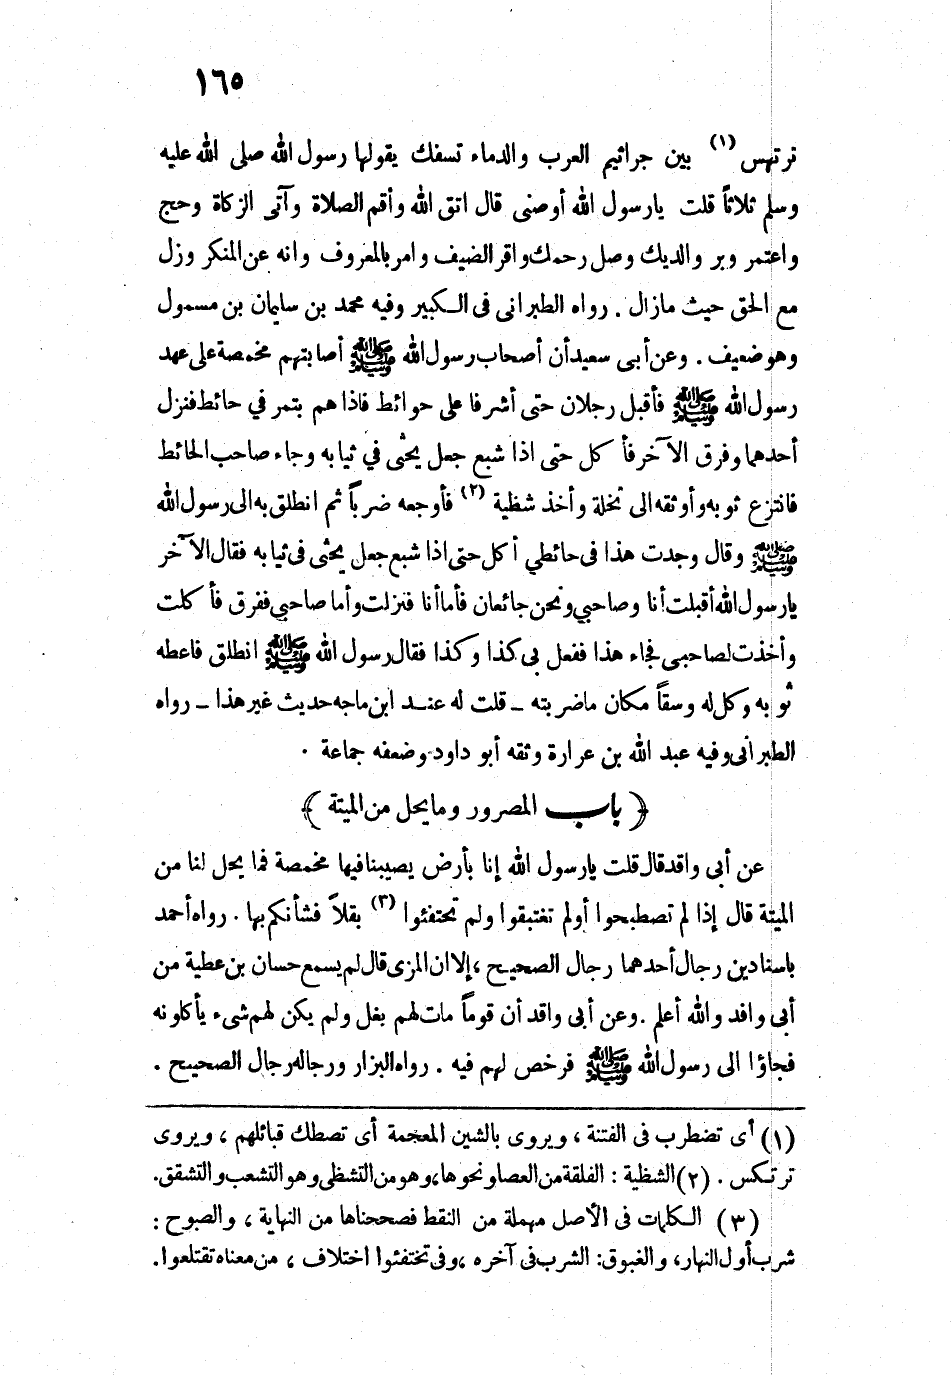 ١٦٥
ترتهس (١) بين جراثيم العرب والدماء تسفك يقولها رسول الله صلى الله عليه
وسلم ثلاثاً قلت يارسول الله أوصنى قال اتق الله وأقم الصلاة وآتى الزكاة وحج
واعتمر وبر والديك وصل رحمك واقر الضيف وامر بالمعروف وانه عن المنكر وزل
مع الحق حيث مازال . رواه الطبرانى فى الكبير وفيه محمد بن سليمان بن مسمول
وهو ضعيف . وعن أبى سعيد أن أصحاب رسول الله ﷺ أصابتهم مخمصة على عهد
رسول الله ﷺ فأقبل رجلان حتى أشرفا على حوائط فاذا هم بتمر في حائط فنزل
أحدهما وفرق الآخر فأكل حتى اذا شبع جعل يحثى في ثيابه وجاء صاحب الحائط
فانتزع ثوبه وأوثقه الى نخلة وأخذ شظية (٢) فأوجعه ضرباً ثم انطلق به الى رسول الله
ﷺ وقال وجدت هذا فى حائطي أكل حتى اذا شبع جعل يحثى فى ثيابه فقال الآخر
يارسول الله أقبلت أنا وصاحبي ونحن جائعان فأما أنا فنزلت وأما صاحبي ففرق فأكلت
وأخذت لصاحبى فجاء هذا ففعل بى كذا وكذا فقال رسول الله ﷺ انطلق فاعطه
ثوبه وكل له وسقاً مكان ماضربته – قلت له عند ابن ماجه حديث غير هذا – رواه
الطبرانى وفيه عبد الله بن عرارة وثقه أبو داود وضعفه جماعة .
﴿ باب المصرور وما يحل من الميتة ﴾
عن أبى واقد قال قلت يارسول الله إنا بأرض يصيبنا فيها مخمصة فما يحل لنا من
الميتة قال إذا لم تصطبحوا أولم تغتبقوا ولم تحتفئوا (٣) بقلاً فشأنكم بها . رواه أحمد
باسنادين رجال أحدهما رجال الصحيح ، إلا ان المزى قال لم يسمع حسان بن عطية من
أبى وافد والله أعلم . وعن أبى واقد أن قوماً مات لهم بغل ولم يكن لهم شىء يأكلونه
فجاؤا الى رسول الله ﷺ فرخص لهم فيه . رواه البزار ورجاله رجال الصحيح .
(١) أى تضطرب فى الفتنة ، ويروى بالشين المعجمة أى تصطك قبائلهم ، ويروى
ترتكس . (٢) الشظية : الفلقة من العصا ونحوها ، وهو من التشظى وهو التشعب والتشقق .
(٣) الكلمات فى الأصل مهملة من النقط فصححناها من النهاية ، والصبوح :
شرب أول النهار ، والغبوق : الشرب فى آخره ، وفى تختفئوا اختلاف ، من معناه تقتلعوا .